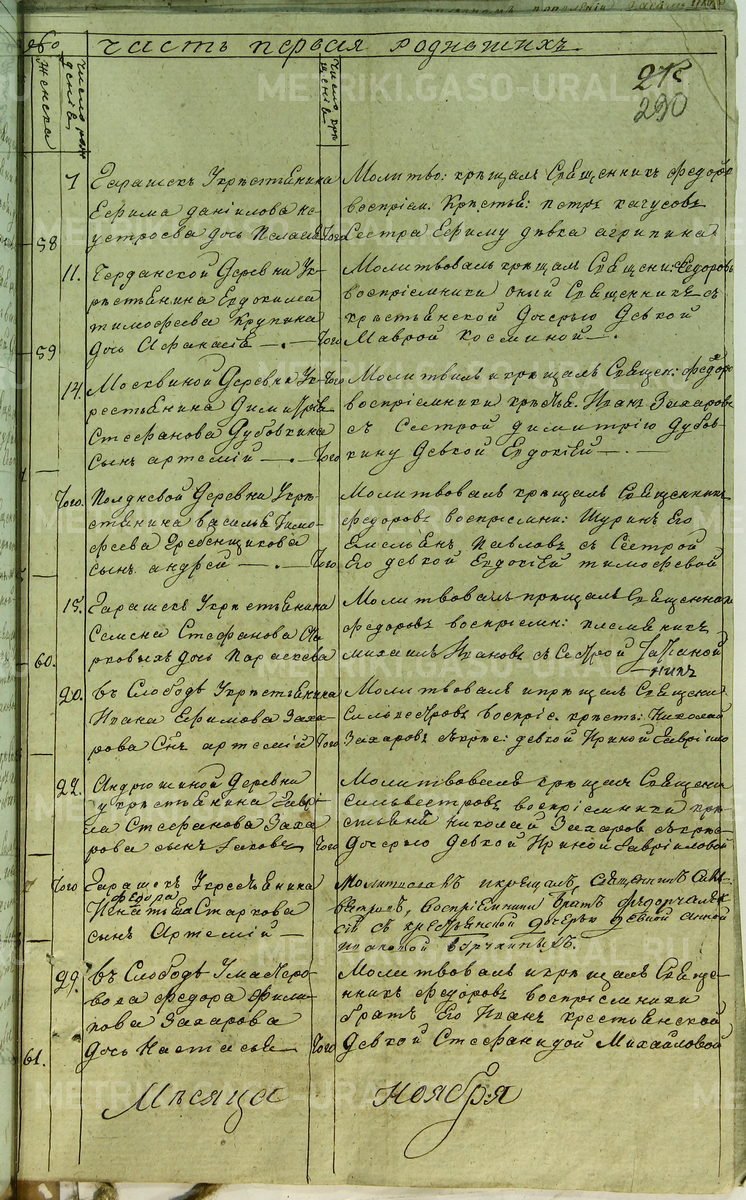 часть первая родившихъ
женска
число рож
денїя
число кре
щенїя
290
7
Гарашкъ Укрестьянина
Ефима Данїилова не
устроева дочь Пелагея
Того
Молитво: крещалъ Священникъ Федоровъ
воспрїем. Крестья: петръ
Сестра Ефиму девка агрипина
58
11.
Деревни Ук-
рестьянина Евдокима
тимофеева Крупина
дочь Афанасїя
Того
Молитвовалъ крещалъ Священи: Федоровъ
воспрїемники оный Священникъ съ
крестьянской дочерью девкой
Маврой Косминой
59
14.
Москвиной Деревни Ук-
рестьянина Димитрїя
Стефанова Дубовкина
сынъ артемїй
Того
Молитвилъ и крещалъ Священ: Федоров
воспрїемники крестья. Иванъ Захаровъ
съ Сестрой димитрїю дубов
кину девкой Евдокїей
Того
Того.
Полдневой Деревни Укре-
стьянина василья Тимо-
феева Гребенщикова
сынъ андрей
Того
Молитвовалъ крещалъ Священникъ
Федоровъ воспрїемни: Шуринъ Его
Емельянъ Павловъ съ Сестрой
Его девкой Евдокїей тимофеевой
15.
Гарашкъ Укрестьянина
Семена Стефанова Ста
рковыхъ дочь Параскева
Молитвовалъ крещалъ Священникъ
Федоровъ воспрїемн: племяникъ
михаилъ Ивановъ съ Сестрой Татїаной
60.
20.
въ Слободе Укрестьянина
Ивана Ефимова Заха-
рова Сынъ артемїй
Того
Молитвовалъ и крещалъ Священи
Сильвестровъ воспрїе. крестья: Николай
Захаровъ съ кре: девкой Ириной Гаврїило
22.
Андрюшиной Деревни
укрестьянина Гаврї-
ла Стефанова Заха
рова сынъ Iаковъ
Того
Молитвовалъ крещалъ Священи
Сильвестровъ воспрїемники кре-
стьянинъ николай Захаров съ крес
дочерью девкой Ириной Гаврїиловой
Того
Гарашкъ Укрестьянина
Федора
Игнатьева Старкова
сынъ Артемїй
Молитвовалъ и крещалъ, священникъ Силь
вестровъ, воспрїемники братъ Федоръ Алек
сїй съ крестьянской дочерью девкой анной
29.
въ Слободе Умастеро-
вова Федора Фили-
пова Захарова
дочь Настасья
Того
Молитвовалъ и крещалъ Священ-
никъ Федоровъ воспрїемники
братъ Его Иванъ крестьянской
девкой Стефанидой Михайловой
61.
Месяца Ноября
METRIKI.GASO-URAL.RU